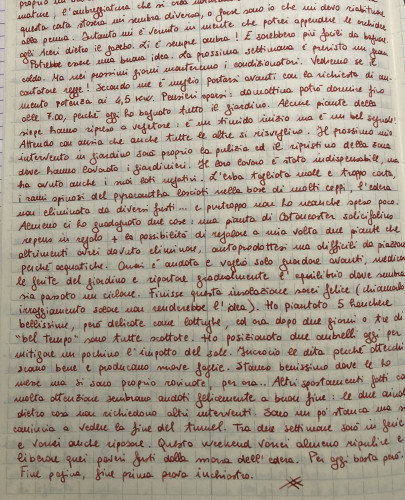 mature, l'ombreggiatura che si crea
questa carta stessa mi sembra diversa, o forse sono io che devo riabituarmi
alla penna. Intanto mi è venuto in mente che potrei appendere le orchidee
agli aceri dietro il gazebo. Lì è sempre ombra! E sarebbero più facili da bagnare
Potrebbe essere una buona idea. La prossima settimana è previsto un gran
caldo. Ma nei prossimi giorni monteremo i condizionatori. Vedremo se il
contatore regge! Secondo me è meglio portarsi avanti con la richiesta di au-
mento potenza ai 4,5 kW. Pensieri sparsi: domattina potrò dormire fino
alle 7.00, perché oggi ho bagnato tutto il giardino. Alcune piante della
siepe hanno ripreso a vegetare: è un timido inizio ma è un bel segnale!
Attendo con ansia che anche tutte le altre si risveglino. Il prossimo mio
intervento in giardino sarà proprio la pulizia ed il ripristino della zona
dove hanno lavorato i giardinieri. Il loro lavoro è stato indispensabile, ma
ha avuto anche i suoi lati negativi. L'erba tagliata male e troppo corta,
i rami spinosi del pyracantha lasciati nella base di molti ceppi, l'edera
non eliminata da diversi fusti... e purtroppo non ho neanche speso poco.
Almeno ci ho guadagnato due cose: una pianta di Cotoneaster salicifolius
repens in regalo + la possibilità di regalare a mia volta due piante che
altrimenti avrei dovuto eliminare, autoprodottesi ma difficili da piazzare
perché acquatiche. Ormai è andata e voglio solo guardare avanti, medicare
le ferite del giardino e riportare gradualmente l'equilibrio dove sembra
sia passato un ciclone. Finisse questa insolazione sarei felice (chiamarlo
irraggiamento solare non renderebbe l'idea). Ho piantato 5 Heuchere
bellissime, però delicate come lattughe, ed ora dopo due giorni o tre di
"bel tempo" sono tutte scottate. Ho posizionato due ombrelli oggi per
mitigare un pochino l'impatto del sole. Incrocio le dita perché attecchi-
scano bene e producano nuove foglie. Stanno benissimo dove le ho
messe ma si sono proprio rovinate, per ora... Altri spostamenti fatti con
molta attenzione sembrano andati felicemente a buon fine: le due
dietro casa non richiedono altri interventi. Sono un po' stanca ma si
comincia a vedere la fine del tunnel. Tra due settimane sarò in ferie
e vorrei anche riposare. Questo weekend vorrei almeno ripulire e
liberare quei poveri fusti dalla morsa dell'edera. Per oggi basta però.
Fine pagina, fine prima prova inchiostro.